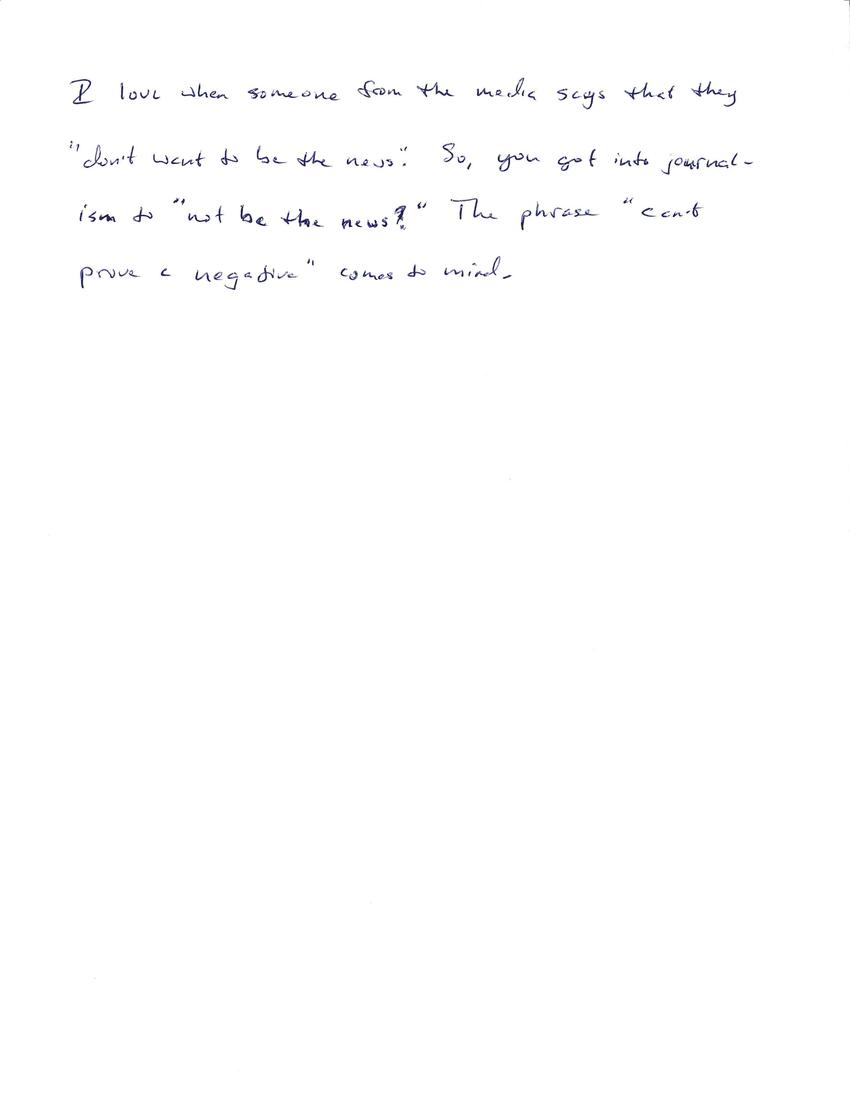 I love when someone from the media says that they
"don't want to be the news". So, you got into journal-
ism to "not be the news?" The phrase "can't
prove a negative" comes to mind.